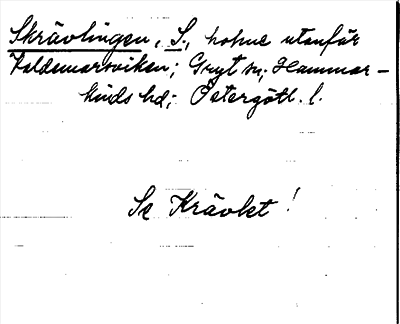 Skrävlingen, S., holme utanför
Valdemarsviken; Gryt sn; Hammar-
kinds hd; Östergötl. l.
Se Krävlet!